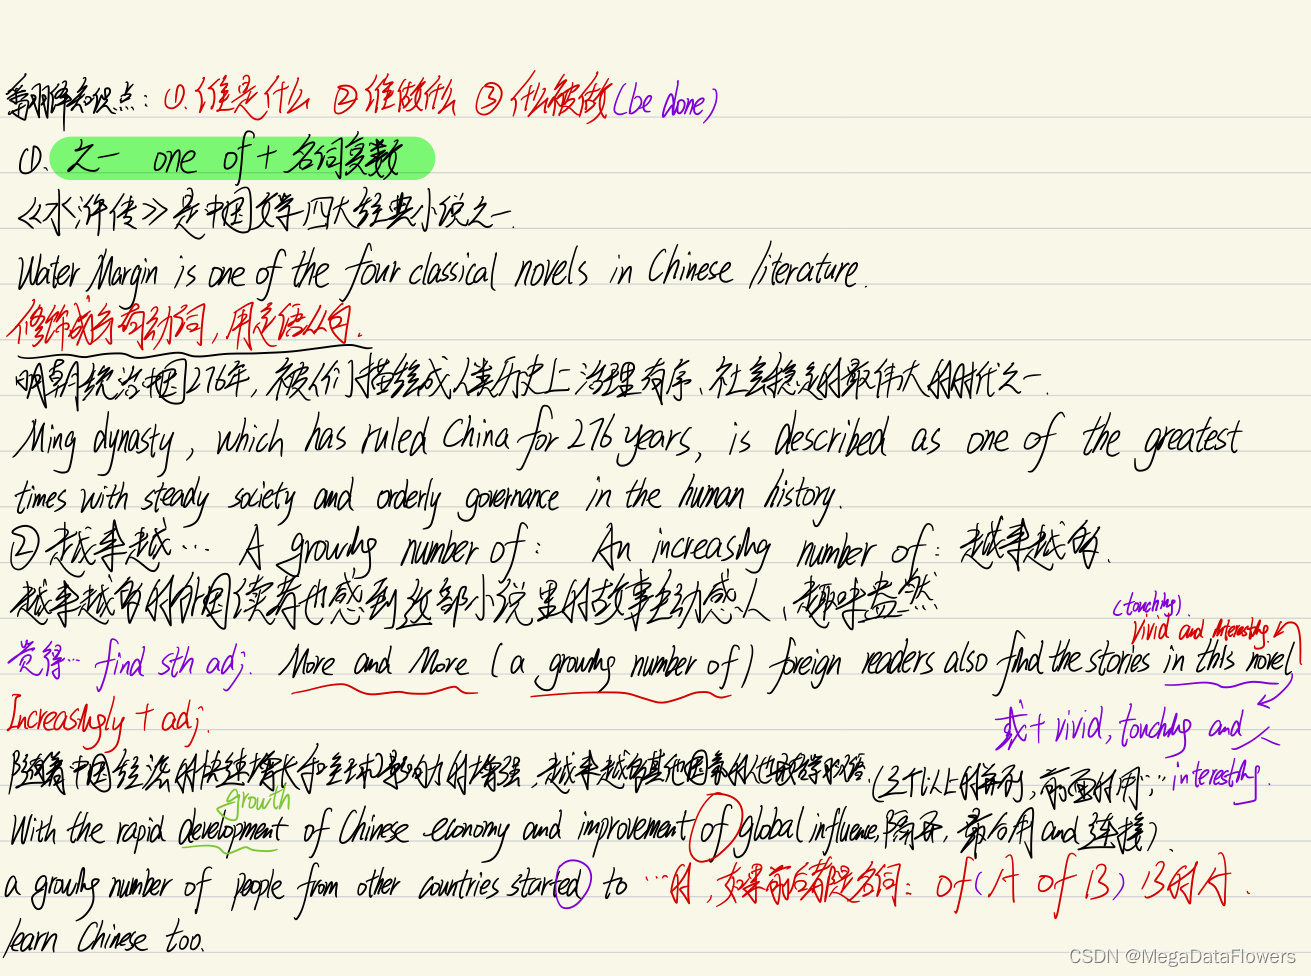 翻译知识点: ①.谁是什么 ②谁做什么 ③什么被做(be done)
①. 之一 one of + 名词复数
《水浒传》是中国文学四大经典小说之一.
Water Margin is one of the four classical novels in Chinese literature.
修饰成分有动词, 用定语从句.
明朝统治中国276年, 被人们描绘成人类历史上治理有序、社会稳定的最伟大的时代之一.
Ming dynasty, which has ruled China for 276 years, is described as one of the greatest
times with steady society and orderly governance in the human history.
② 越来越… A growing number of: An increasing number of: 越来越多的.
越来越多的外国读者也感到这部小说里的故事生动感人、趣味盎然
(touching).
vivid and interesting
觉得… find sth adj. More and More (a growing number of) foreign readers also find the stories in this novel
Increasingly + adj.
或+ vivid, touching and
interesting.
随着中国经济的快速增长和全球影响力的增强, 越来越多其他国家的人也开始学汉语.
(三个以上的并列, 前面的用","
隔开, 最后用and连接).
growth
With the rapid development of Chinese economy and improvement of global influence,
a growing number of people from other countries started to
learn Chinese too.
…的, 如果前后都是名词: of (A of B) B的A.
CSDN @MegaDataFlowers